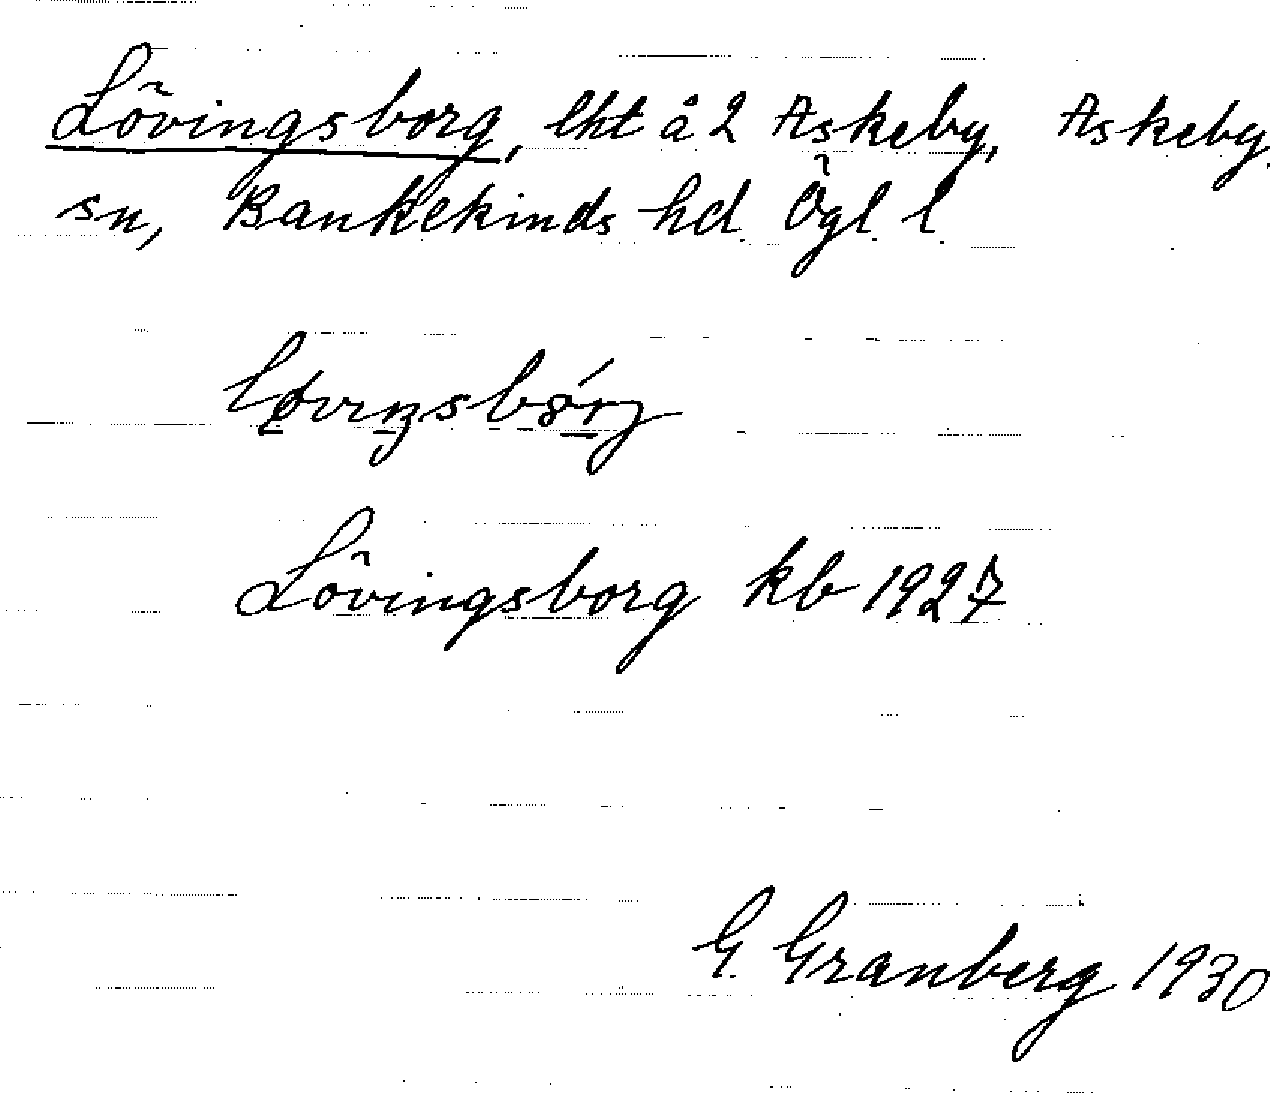 Lövingsborg, lht å 2 Askeby, Askeby
sn, Bankekinds hd. Ögl. l.
Lövingsborg kb 1927
G. Granberg 1930